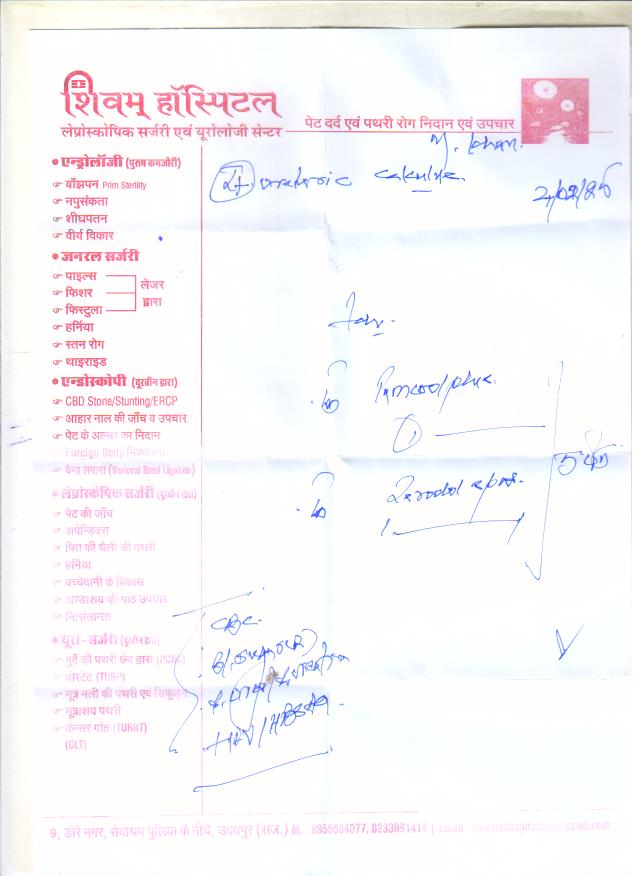 शिवम् हॉस्पिटल
लेप्रोस्कोपिक सर्जरी एवं यूरोलोजी सेन्टर
पेट दर्द एवं पथरी रोग निदान एवं उपचार
• एन्ड्रोलॉजी (पुरुष कमजोरी)
बाँझपन Prim Sterility
नपुसंकता
शीघ्रपतन
वीर्य विकार
• जनरल सर्जरी
पाइल्स
फिशर
फिस्टुला
लेजर
द्वारा
हर्निया
स्तन रोग
थाइराइड
• एन्डोस्कोपी (दूरबीन द्वारा)
CBD Stone/Stunting/ERCP
आहार नाल की जाँच व उपचार
पेट के अल्सर का निदान
Foreign Body निकालना
बैन्ड लगाना (Variceal Band Ligation)
• लेप्रोस्कोपिक सर्जरी (दूरबीन द्वारा)
पेट की जाँच
अपेन्डिक्स
पित्त की थैली की पथरी
हर्निया
बच्चेदानी के विकास
अण्डाशय की गाठ उपचार
निःसंतानता
• यूरो- सर्जरी (दूरबीन द्वारा)
गुर्दे की पथरी छेद द्वारा (PCNL)
प्रोस्टेट (TURP)
मूत्र नली की पथरी एवं सिकुड़न
मूत्राशय पथरी
कॅन्सर गांठ (TURBT)
(CLT)
ureteric calculus
Adv
CBC
HIV/HBSAg
9, डोरे नगर, सेवाश्रम पुलिया के नीचे, उदयपुर (राज.) M. : 8955584077, 8233091414 | Email :